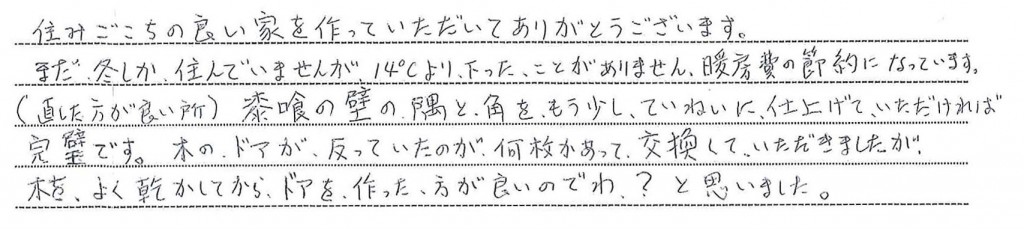 住みごこちの良い家を作っていただいてありがとうございます。
まだ、冬しか、住んでいませんが、14℃より、下った、ことがありません、暖房費の節約になっています。
(直した方が良い所) 漆喰の壁の、隅と、角を、もう少し、ていねいに、仕上げて、いただければ
完璧です。木の、ドアが、反っていたのが、何枚かあって、交換して、いただきましたが、
木を、よく乾かしてから、ドアを、作った、方が良いのでわ、?と思いました。